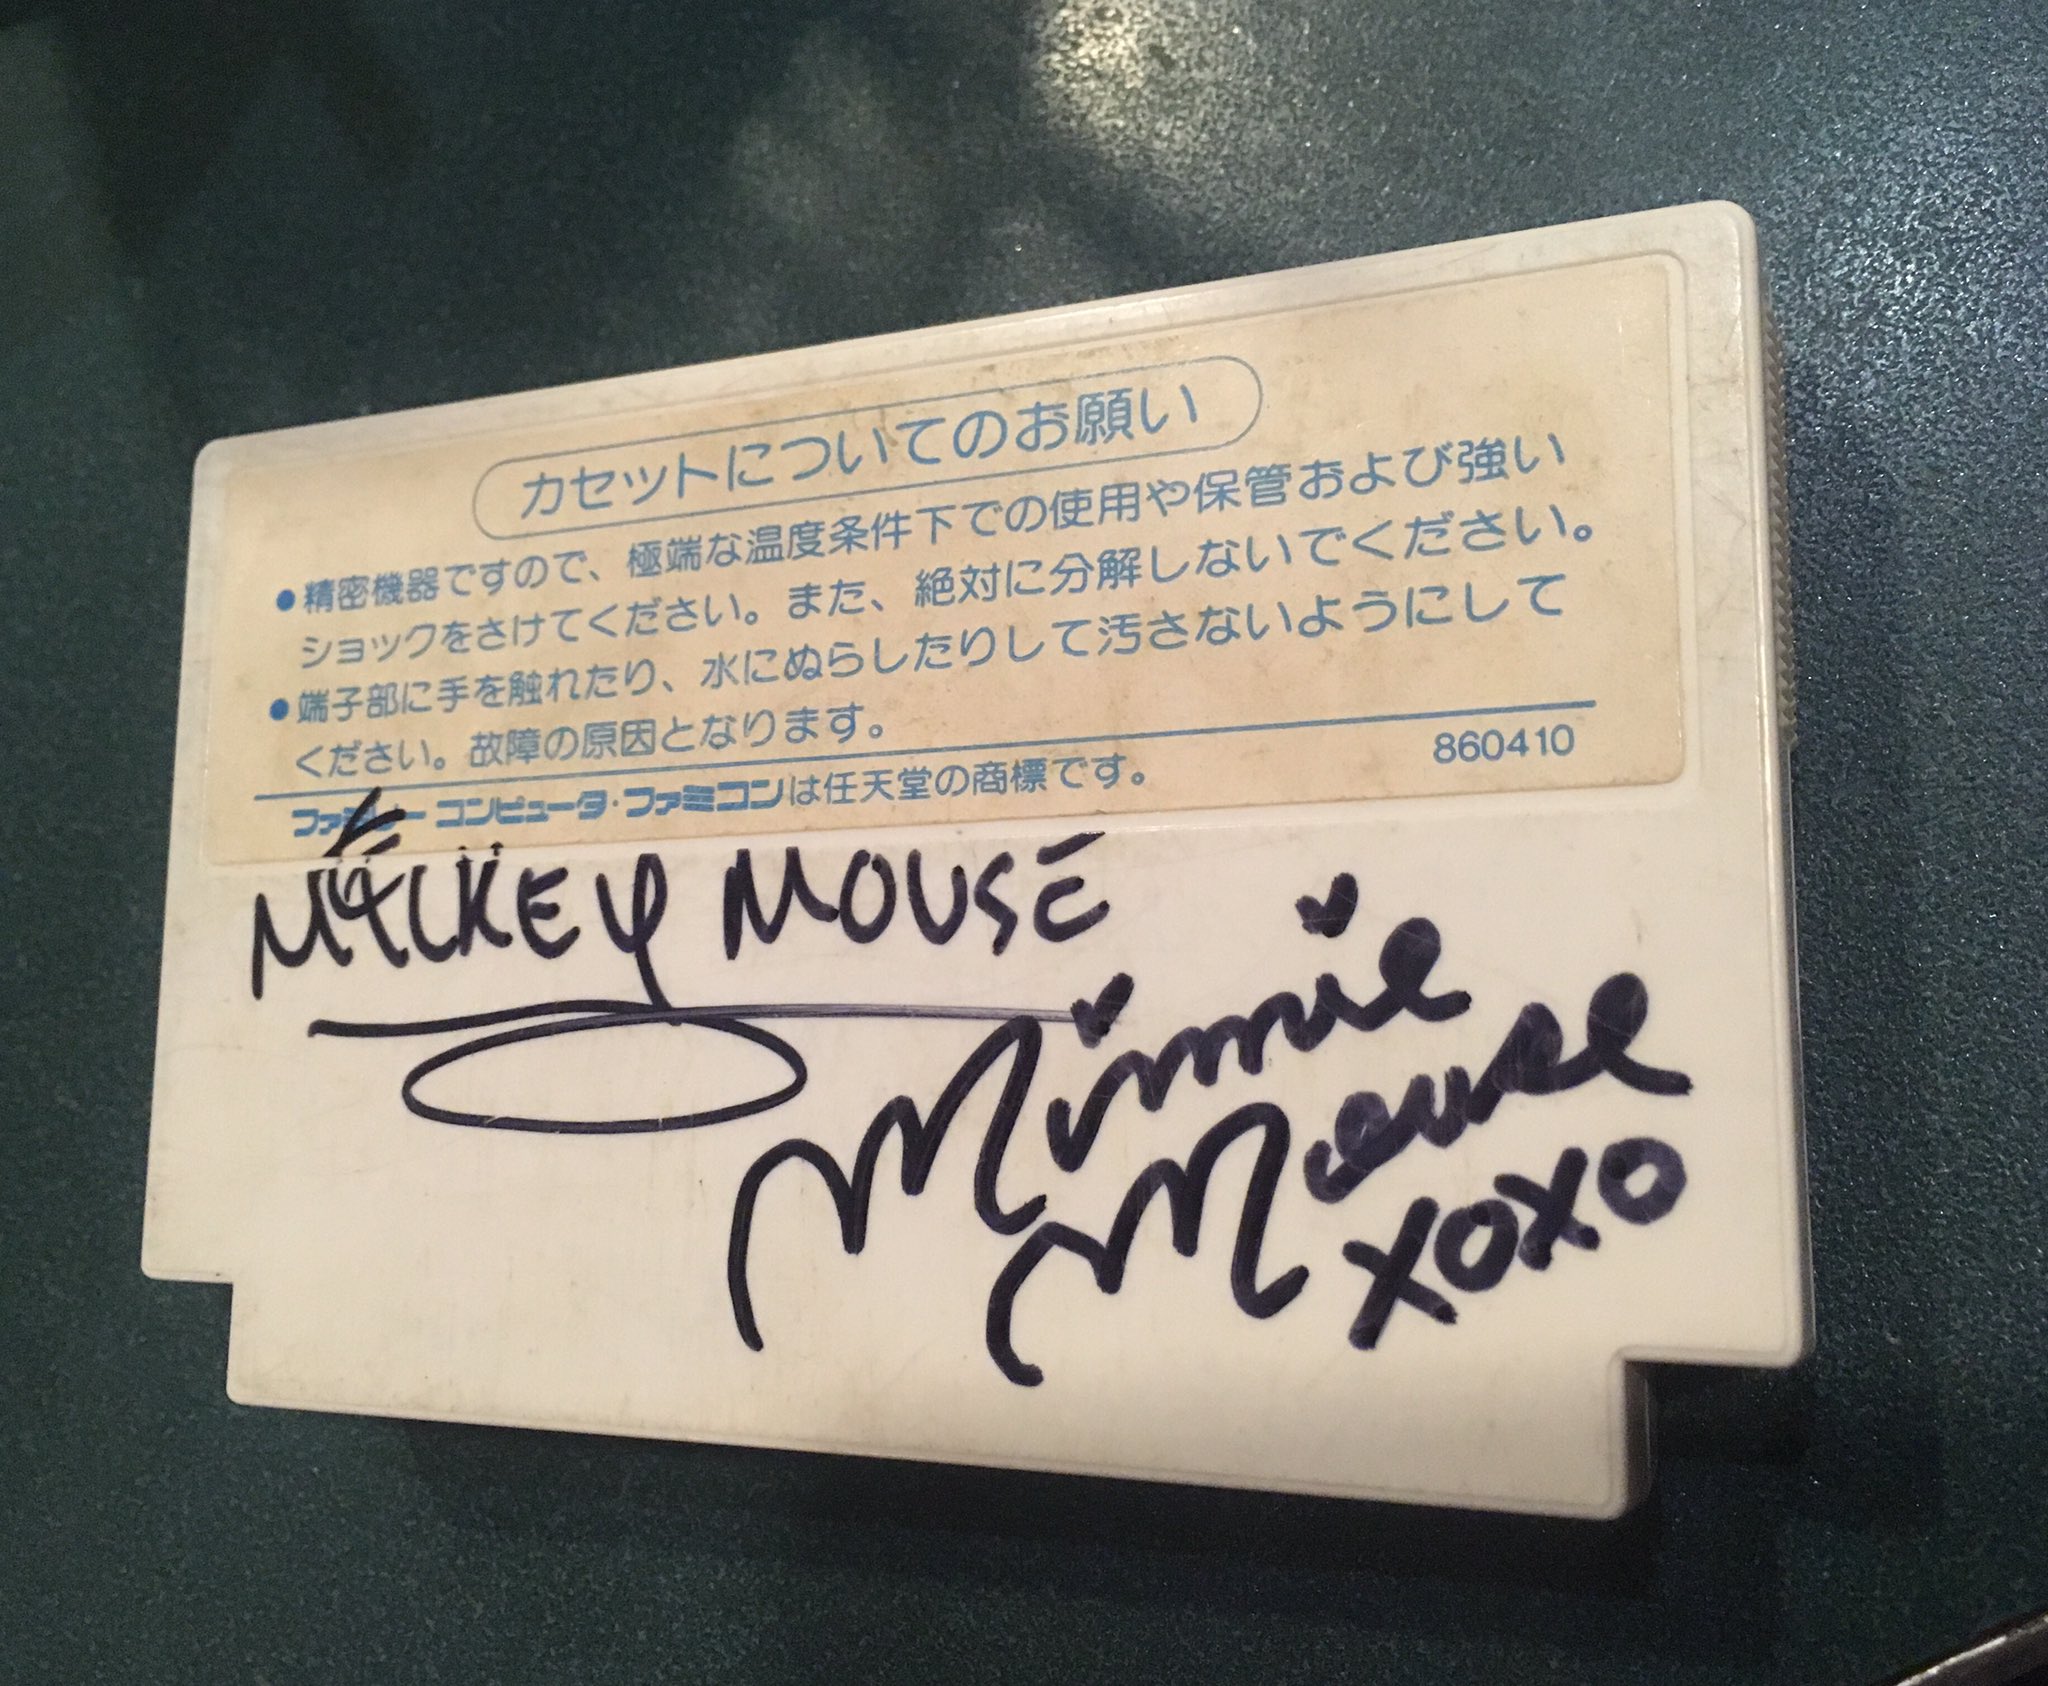 カセットについてのお願い
●精密機器ですので、極端な温度条件下での使用や保管および強い
ショックをさけてください。また、絶対に分解しないでください。
●端子部に手を触れたり、水にぬらしたりして汚さないようにして
ください。故障の原因となります。
860410
ファミリー コンピュータ・ファミコンは任天堂の商標です。
MICKEY MOUSE
Minnie
Mouse
XOXO